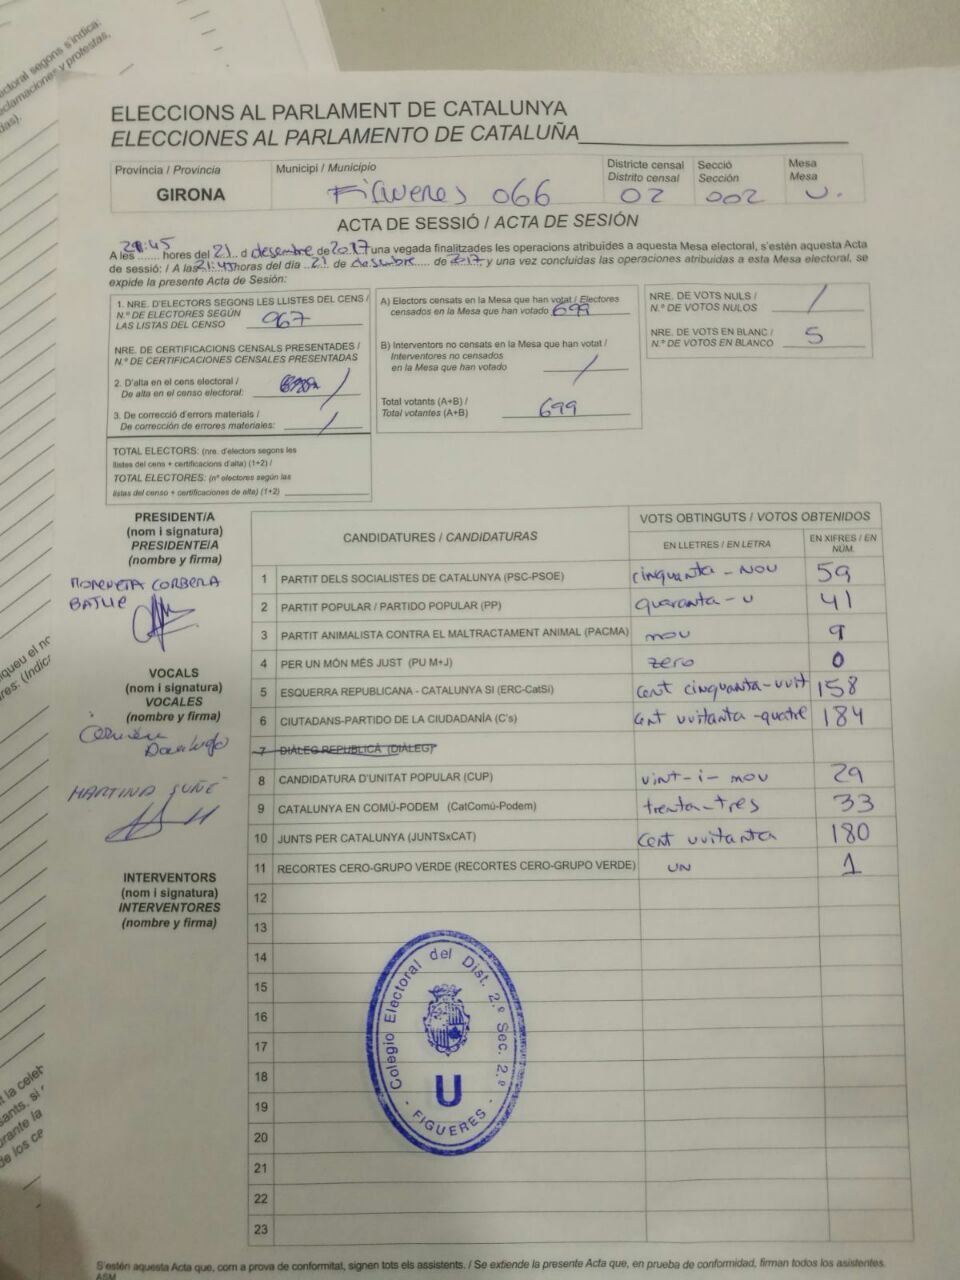 ctoral segons s'indica.
clamaciones y protestas,
das).
ELECCIONS AL PARLAMENT DE CATALUNYA
ELECCIONES AL PARLAMENTO DE CATALUÑA
Província / Provincia
GIRONA
Municipi / Municipio
Figueres 066
Districte censal
Distrito censal
02
Secció
Sección
002
Mesa
Mesa
U.
ACTA DE SESSIÓ / ACTA DE SESIÓN
A les 21:45 hores del 21 d desembre de 2017 una vegada finalitzades les operacions atribuïdes a aquesta Mesa electoral, s'estén aquesta Acta
de sessió: / A las 21:45 horas del día 21 de desembre de 2017 y una vez concluidas las operaciones atribuidas a esta Mesa electoral, se
expide la presente Acta de Sesión:
1. NRE. D'ELECTORS SEGONS LES LLISTES DEL CENS /
N.º DE ELECTORES SEGÚN
LAS LISTAS DEL CENSO 967
NRE. DE CERTIFICACIONS CENSALS PRESENTADES /
N.º DE CERTIFICACIONES CENSALES PRESENTADAS
2. D'alta en el cens electoral /
De alta en el censo electoral: /
3. De correcció d'errors materials /
De corrección de errores materiales: /
TOTAL ELECTORS: (nre. d'electors segons les
llistes del cens + certificacions d'alta) (1+2) /
TOTAL ELECTORES: (nº electores según las
listas del censo + certificaciones de alta) (1+2)
A) Electors censats en la Mesa que han votat / Electores
censados en la Mesa que han votado 699
B) Interventors no censats en la Mesa que han votat /
Interventores no censados
en la Mesa que han votado /
Total votants (A+B) /
Total votantes (A+B) 699
NRE. DE VOTS NULS /
N.º DE VOTOS NULOS /
NRE. DE VOTS EN BLANC /
N.º DE VOTOS EN BLANCO 5
PRESIDENT/A
(nom i signatura)
PRESIDENTE/A
(nombre y firma)
CORBERA
BATLLE
VOCALS
(nom i signatura)
VOCALES
(nombre y firma)
MARTINA SUÑÉ
INTERVENTORS
(nom i signatura)
INTERVENTORES
(nombre y firma)
CANDIDATURES / CANDIDATURAS
VOTS OBTINGUTS / VOTOS OBTENIDOS
EN LLETRES / EN LETRA
EN XIFRES / EN
NÚM.
1 PARTIT DELS SOCIALISTES DE CATALUNYA (PSC-PSOE) cinquanta-nou 59
2 PARTIT POPULAR / PARTIDO POPULAR (PP) quaranta-u 41
3 PARTIT ANIMALISTA CONTRA EL MALTRACTAMENT ANIMAL (PACMA) nou 9
4 PER UN MÓN MÉS JUST (PU M+J) zero 0
5 ESQUERRA REPUBLICANA - CATALUNYA SI (ERC-CatSi) cent cinquanta-vuit 158
6 CIUTADANS-PARTIDO DE LA CIUDADANÍA (C's) cent vuitanta-quatre 184
7 DIÀLEG REPUBLICÀ (DIÀLEG)
8 CANDIDATURA D'UNITAT POPULAR (CUP) vint-i-nou 29
9 CATALUNYA EN COMÚ-PODEM (CatComú-Podem) trenta-tres 33
10 JUNTS PER CATALUNYA (JUNTSxCAT) cent vuitanta 180
11 RECORTES CERO-GRUPO VERDE (RECORTES CERO-GRUPO VERDE) UN 1
12
13
14
15
16
17
18
19
20
21
22
23
Colegio Electoral del Dist. 2.º Sec. 2.º
U
- FIGUERES -
S'estén aquesta Acta que, com a prova de conformitat, signen tots els assistents. / Se extiende la presente Acta que, en prueba de conformidad, firman todos los asistentes.
ASM